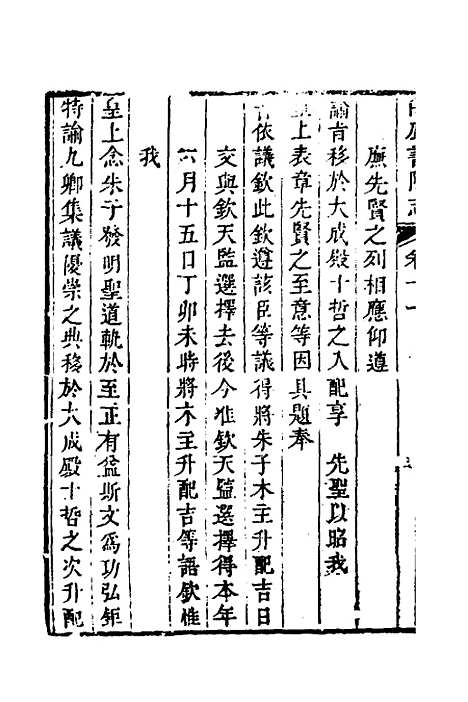 書院志 卷十一
廡先賢之列相應仰遵
諭旨移於大成殿十哲之次配享 先聖以昭我
上表章先賢之至意等因具題奉
旨依議欽此欽遵該臣等議得將朱子木主升配吉日
交與欽天監選擇去後今准欽天監選擇得本年
六月十五日丁卯未時將木主升配吉等語欽惟
我
皇上念朱子發明聖道軌於至正有益斯文爲功弘鉅
特諭九卿集議優崇之典移於大成殿十哲之次升配